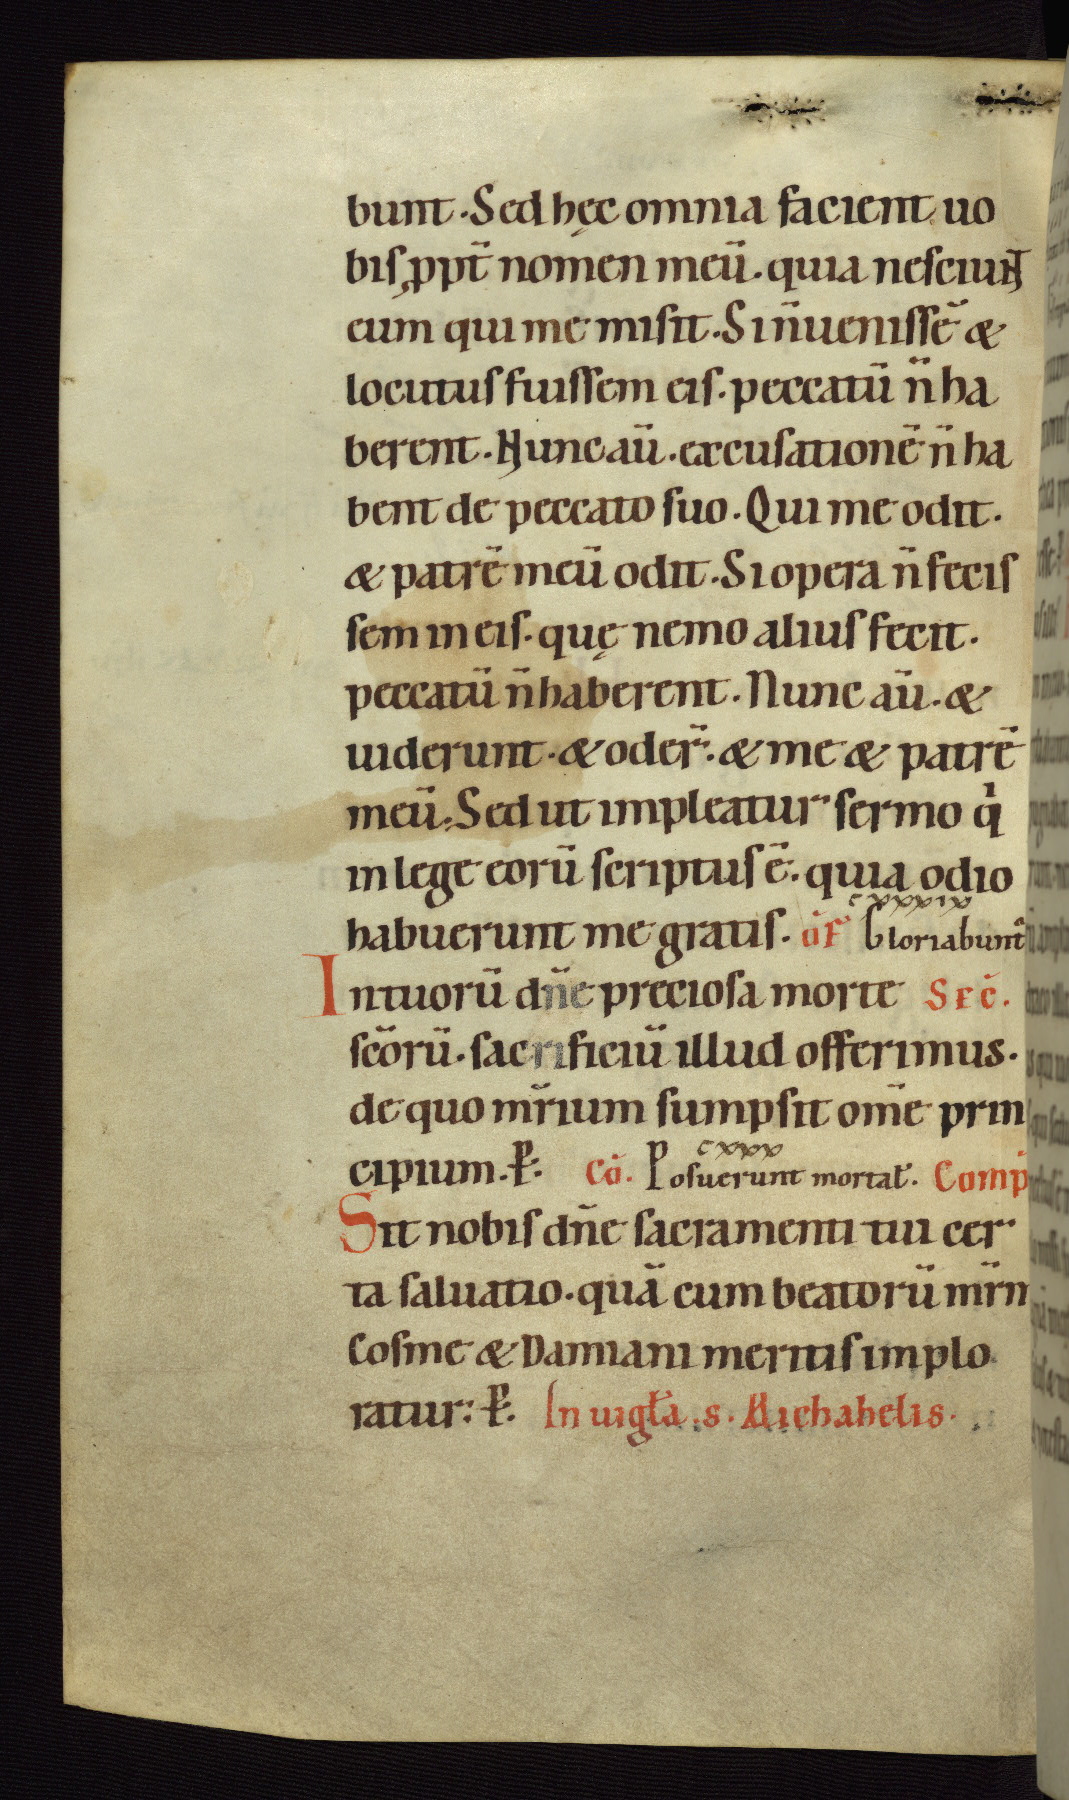 bunt. Sed hęc omnia facient uo
bis ꝓpt̄ nomen meū. quia nesciunt
eum qui me misit. Si n̄ uenissē &
locutus fuissem eis. peccatū n̄ ha
berent. Nunc aū. excusationē n̄ ha
bent de peccato suo. Qui me odit.
& patrē meū odit. Si opera n̄ fecis
sem in eis. quę nemo alius fecit.
peccatū n̄ haberent. Nunc aū. &
uiderunt. & oder̄. & me & patrē
meū. Sed ut impleatur sermo q̇
in lege eorū scriptus ē. quia odio
cxxxxix
habuerunt me gratis. of̄ Gloriabunt̄
Intuorū dn̄e preciosa morte Sec̄.
sc̄orū. sacrificiū illud offerimus.
de quo mr̄ium sumpsit om̄e prin
cxxx
cipium. P̄. Cō. Posuerunt mortal̄. Comp̄
Sit nobis dn̄e sacramenti tui cer
ta saluatio. quā cum beatorū mr̄m
Cosme & Damiani meritis implo
ratur. P̄. In uigl̄a .s. Michahelis.